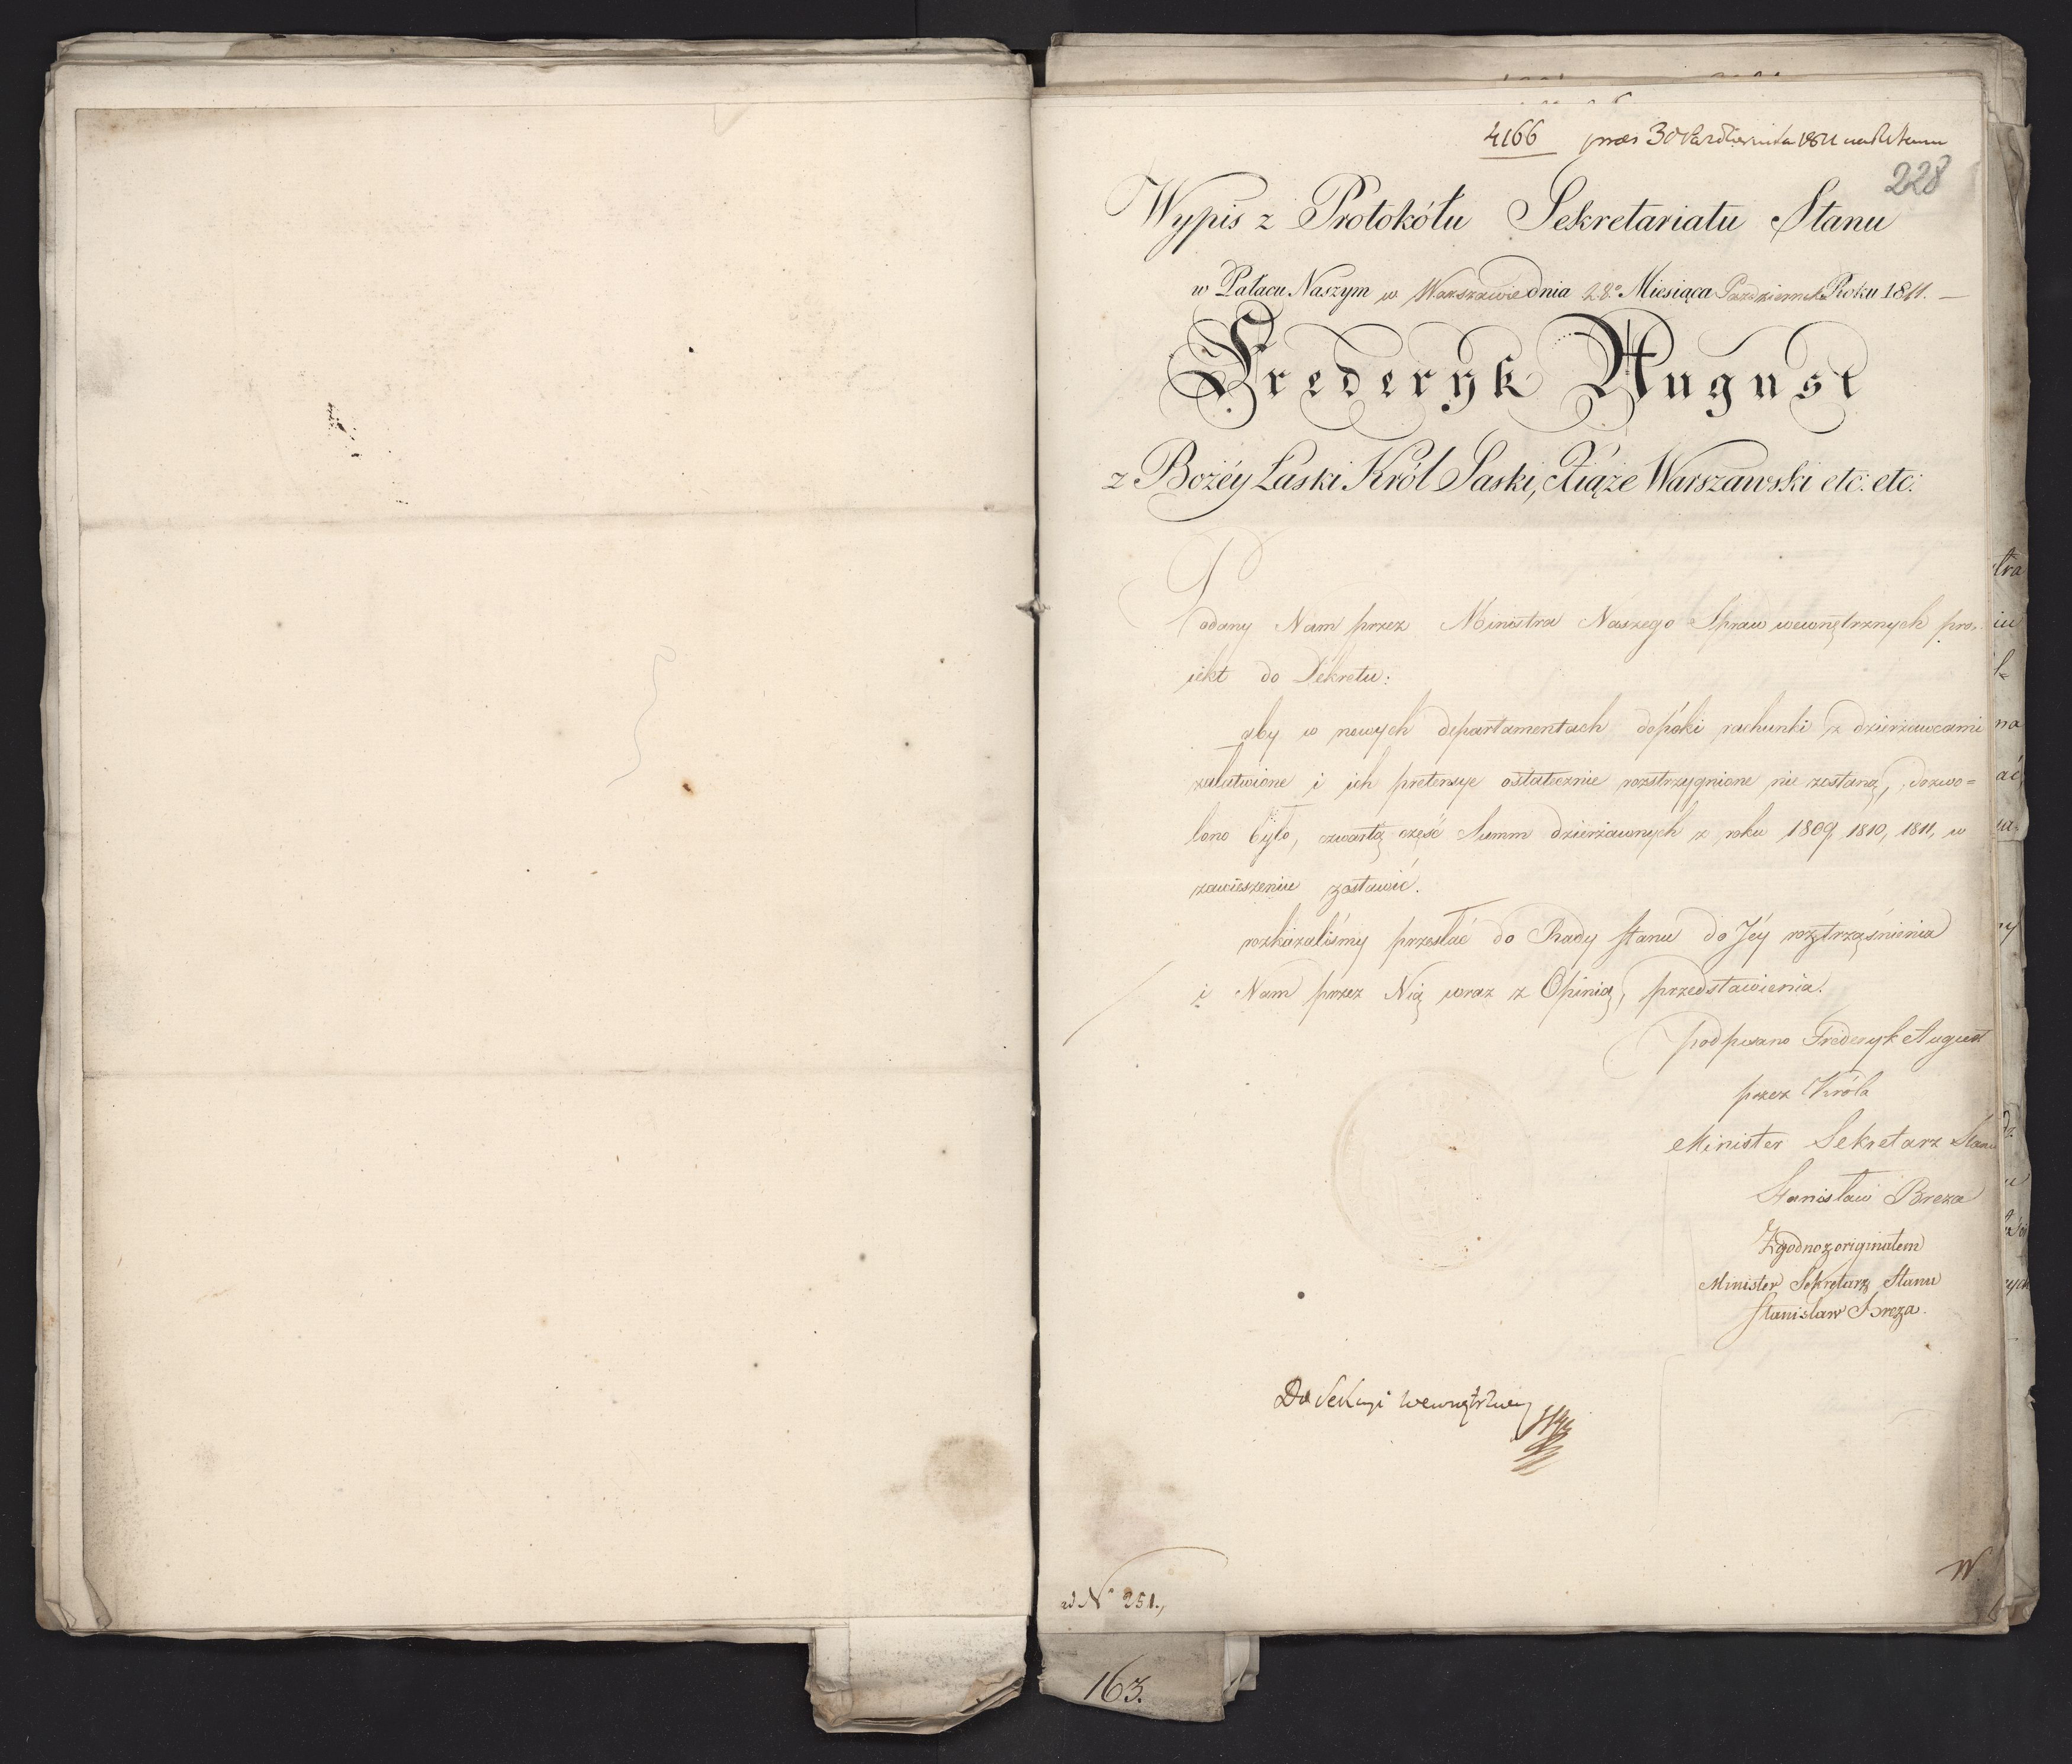 4166 pras 30 Października 1811
228
Wypis z Protokółu Sekretariatu Stanu
w Pałacu Naszym w Warszawie dnia 28.º Miesiąca Października Roku 1811. —
Frederyk August
z Bożéy Łaski Król Saski, Xiąże Warszawski etc: etc:
Podany Nam przez Ministra Naszego Spraw wewnętrznych pro=
iekt do Dekretu:
aby w nowych departamentach dopóki rachunki z dzierżawcami
załatwione i ich pretensye ostatecznie rozstrzygnione nie zostaną, dozwo=
lono było, czwartą część Summ dzierżawnych z roku 1809, 1810, 1811, w
zawieszeniu zostawić.
rozkazaliśmy przesłać do Rady Stanu do Jéy roztrząśnienia
i Nam przez Nią wraz z Opinią, przedstawienia.
podpisano Frederyk August
przez Króla
Minister Sekretarz Stanu
Stanisław Breza
Zgodno z originałem
Minister Sekretarz Stanu
Stanisław Breza.
Do Sekcyi Wewnętrzney
ad Nº 251.
W
163.